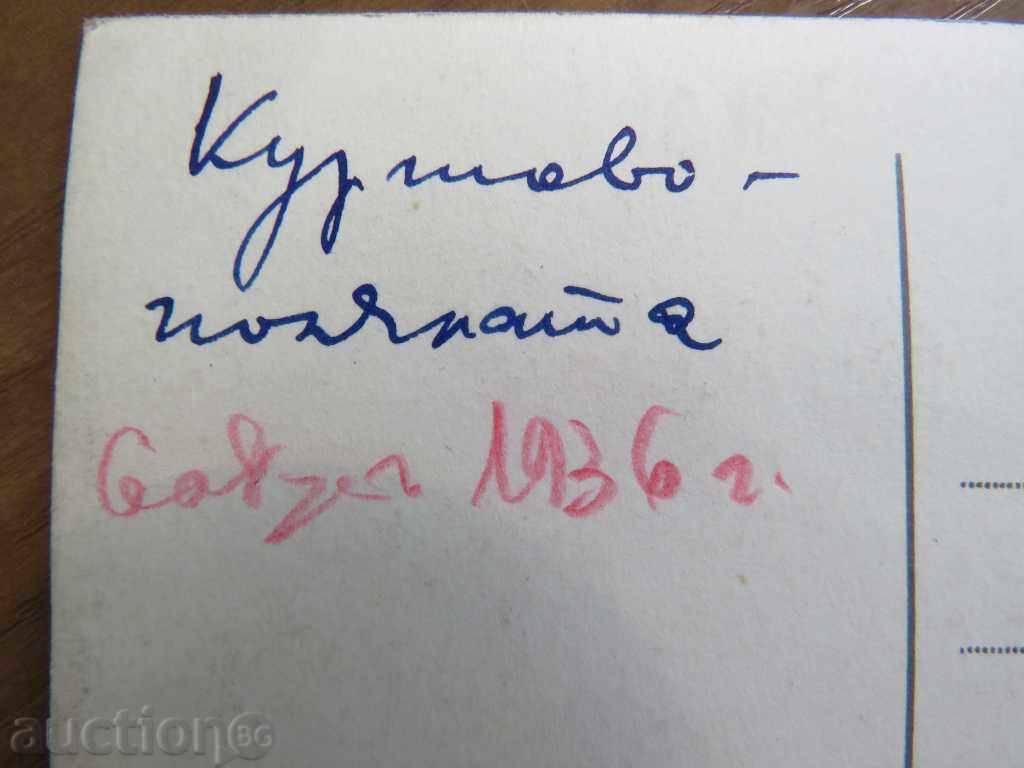 Куртово -
поляната
6 август 1936 г.
auctionBG